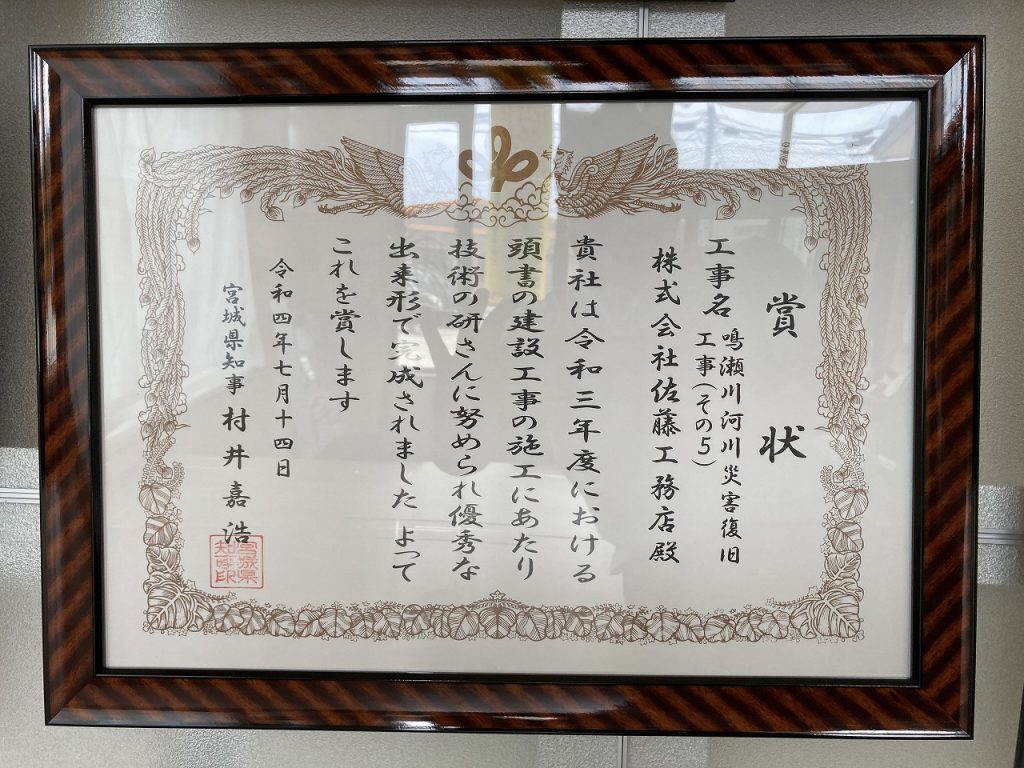 賞状
工事名 鳴瀬川河川災害復旧
工事(その5)
株式会社佐藤工務店殿
貴社は令和三年度における
頭書の建設工事の施工にあたり
技術の研さんに努められ優秀な
出来形で完成されました よって
これを賞します
令和四年七月十四日
宮城県知事 村井嘉浩
宮城県
知事印